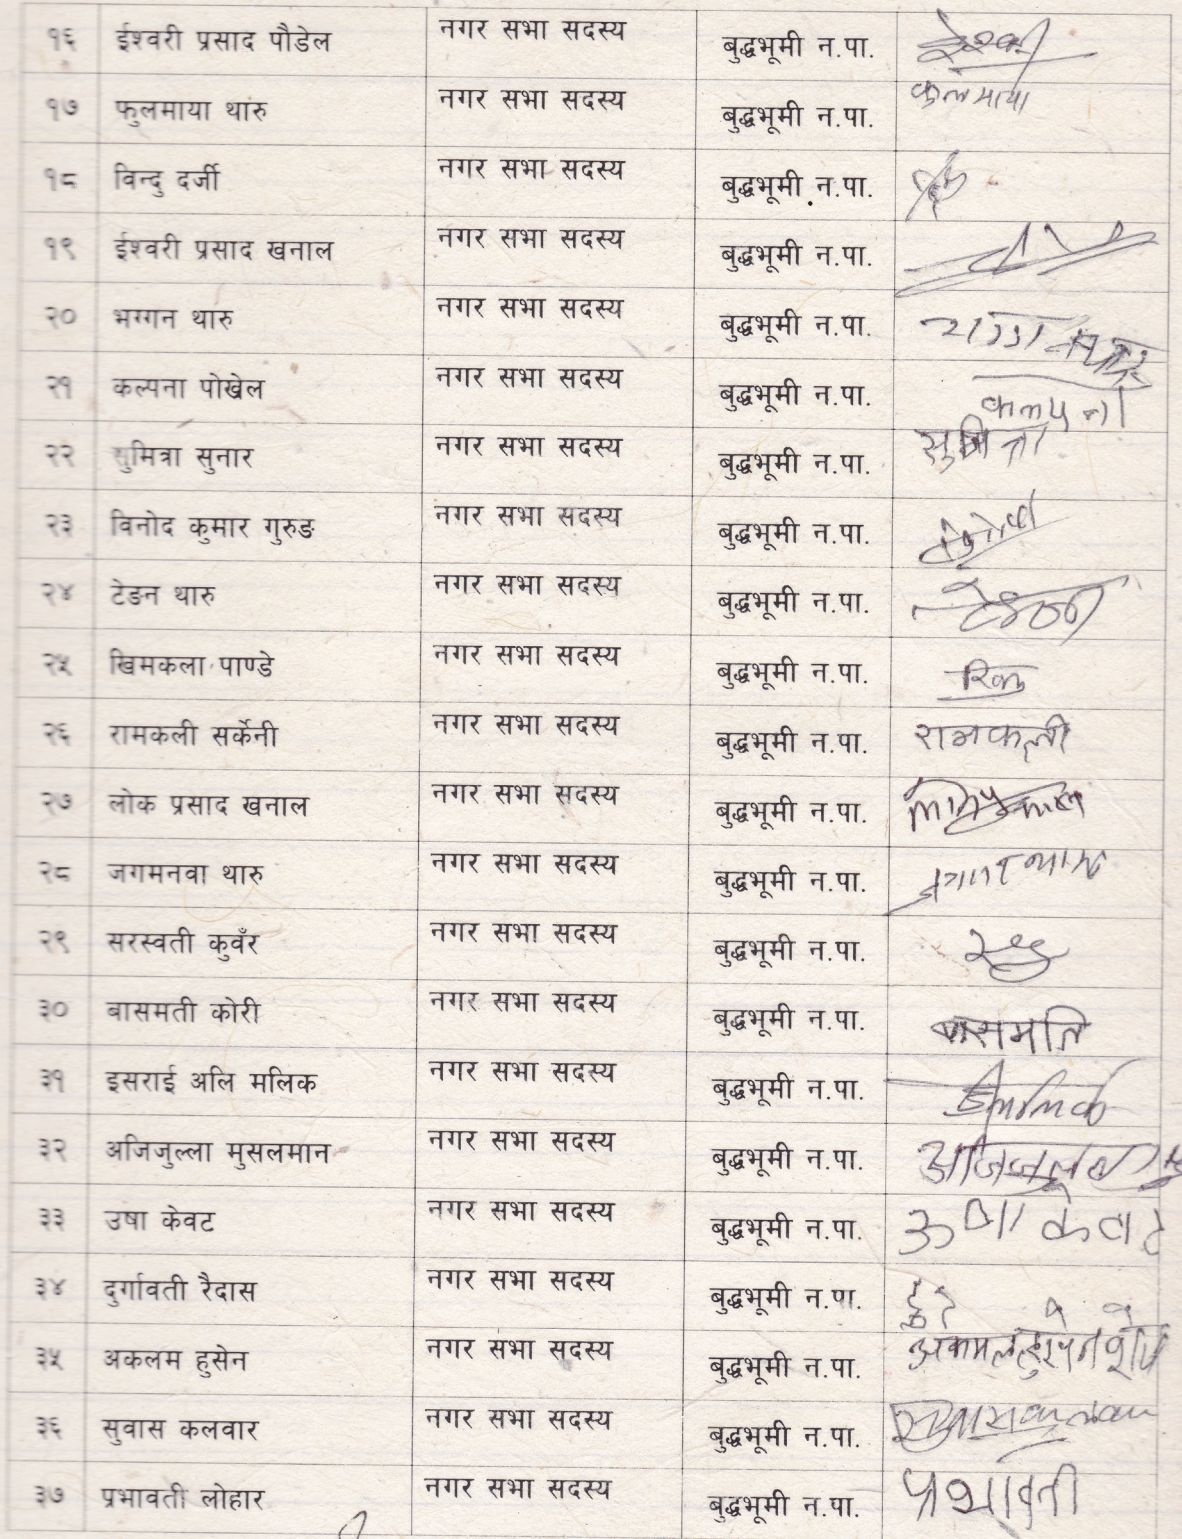 १६ ईश्वरी प्रसाद पौडेल नगर सभा सदस्य बुद्धभूमी न.पा.
१७ फुलमाया थारु नगर सभा सदस्य बुद्धभूमी न.पा. फुलमाया
१८ विन्दु दर्जी नगर सभा सदस्य बुद्धभूमी न.पा.
१९ ईश्वरी प्रसाद खनाल नगर सभा सदस्य बुद्धभूमी न.पा.
२० भग्गन थारु नगर सभा सदस्य बुद्धभूमी न.पा.
२१ कल्पना पोखेल नगर सभा सदस्य बुद्धभूमी न.पा. कल्पना
२२ सुमित्रा सुनार नगर सभा सदस्य बुद्धभूमी न.पा. सुमित्रा
२३ विनोद कुमार गुरुङ नगर सभा सदस्य बुद्धभूमी न.पा.
२४ टेङन थारु नगर सभा सदस्य बुद्धभूमी न.पा.
२५ खिमकला पाण्डे नगर सभा सदस्य बुद्धभूमी न.पा.
२६ रामकली सर्केनी नगर सभा सदस्य बुद्धभूमी न.पा. रामकली
२७ लोक प्रसाद खनाल नगर सभा सदस्य बुद्धभूमी न.पा.
२८ जगमनवा थारु नगर सभा सदस्य बुद्धभूमी न.पा.
२९ सरस्वती कुवँर नगर सभा सदस्य बुद्धभूमी न.पा.
३० बासमती कोरी नगर सभा सदस्य बुद्धभूमी न.पा. बासमति
३१ इसराई अलि मलिक नगर सभा सदस्य बुद्धभूमी न.पा.
३२ अजिजुल्ला मुसलमान नगर सभा सदस्य बुद्धभूमी न.पा.
३३ उषा केवट नगर सभा सदस्य बुद्धभूमी न.पा. ऊषा केवट
३४ दुर्गावती रैदास नगर सभा सदस्य बुद्धभूमी न.पा.
३५ अकलम हुसेन नगर सभा सदस्य बुद्धभूमी न.पा.
३६ सुवास कलवार नगर सभा सदस्य बुद्धभूमी न.पा.
३७ प्रभावती लोहार नगर सभा सदस्य बुद्धभूमी न.पा. प्रभावती